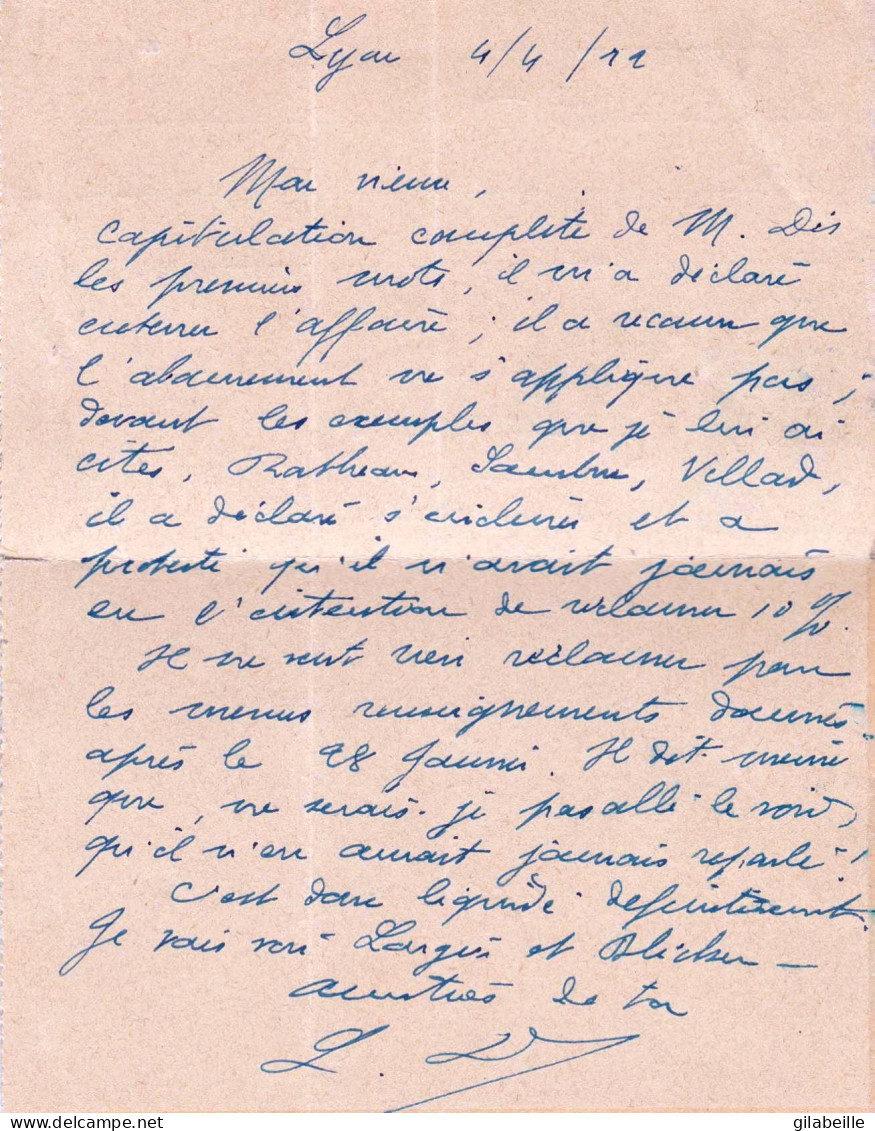 Lyon 4/4/22
Mon vieux,
Capitulation complète de M. Dès
les premiers mots, il m'a déclaré
enterrer l'affaire ; il a reconnu que
l'abonnement ne s'applique pas ;
devant les exemples que je lui ai
cités,
il a déclaré s'incliner et a
protesté qu'il n'avait jamais
eu l'intention de réclamer 10 %.
Il ne veut rien réclamer pour
les menus renseignements donnés
après le 28 Janvier. Il dit même
que, ne serais-je pas allé le voir,
qu'il n'en aurait jamais reparlé !
C'est donc liquidé définitivement.
Je vais voir et
de ton
L. D
delcampe.net
gilabeille